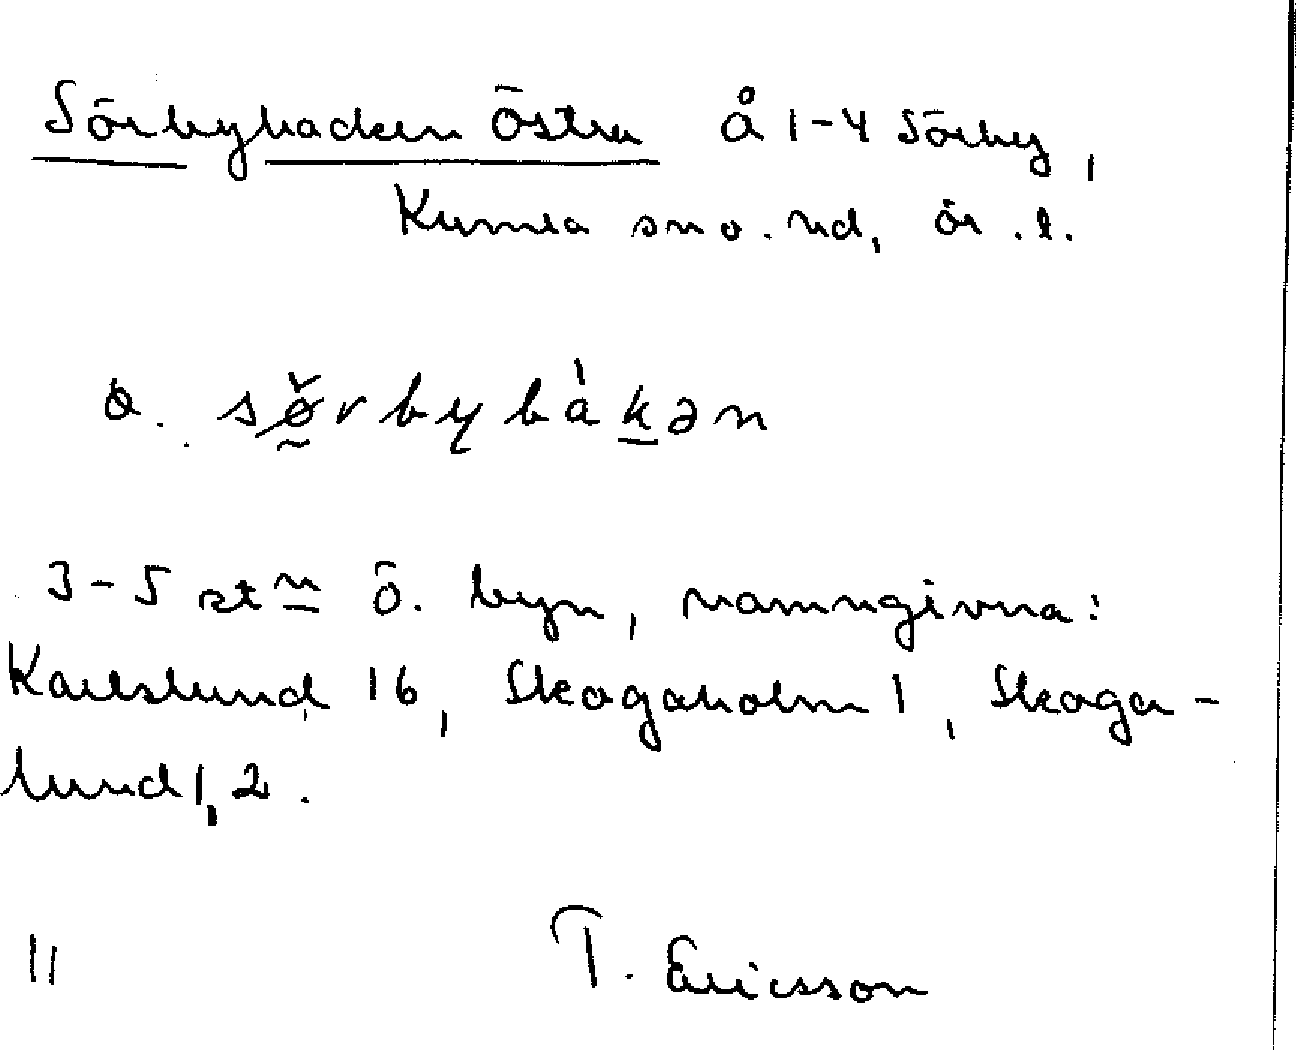 Sörbybacken Östra å 1-4 Sörby,
Kumla sn o. hd, ör. l.
sø̌rbybàkən
3-5 st ö. byn, namngivna:
Karlslund 16, Skogaholm 1, Skoga-
lund 1, 2.
11 T. Ericsson